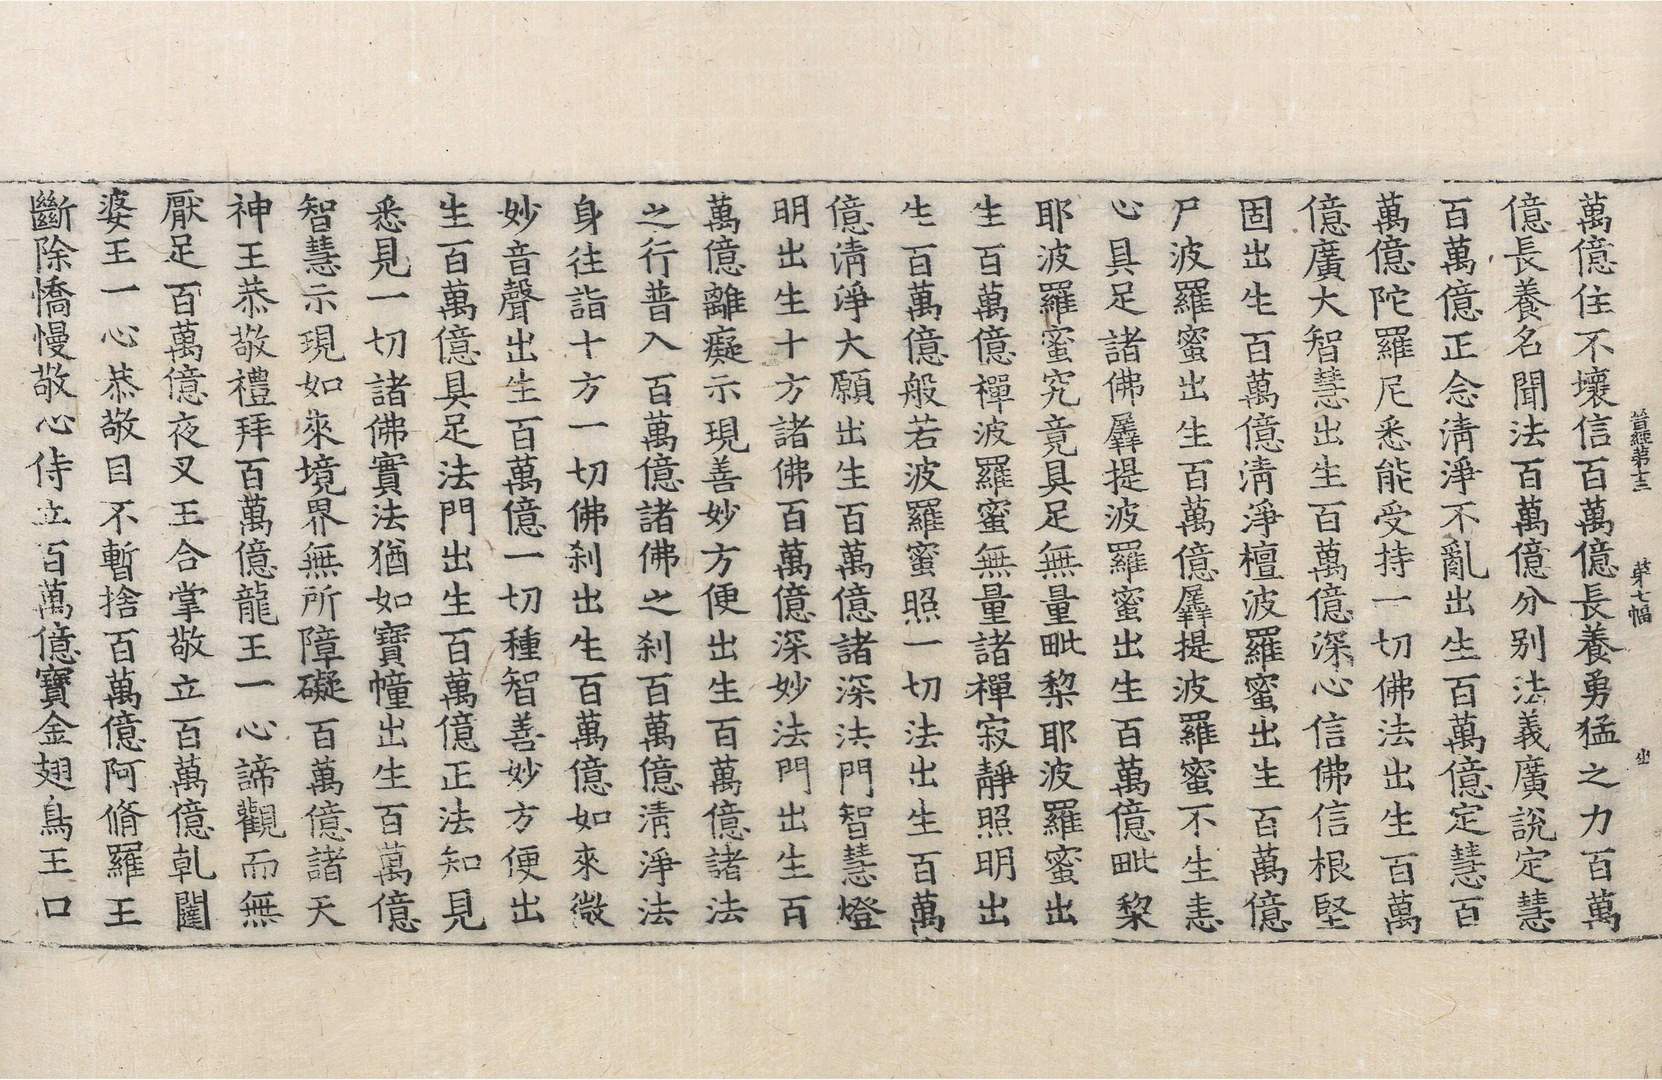 晉經第十三 第七幅 㘴
萬億住不壞信百萬億長養勇猛之力百萬
億長養名聞法百萬億分别法義廣說定慧
百萬億正念清淨不亂出生百萬億定慧百
萬億陀羅尼悉能受持一切佛法出生百萬
億廣大智慧出生百萬億深心信佛信根堅
固出生百萬億清淨檀波羅蜜出生百萬億
尸波羅蜜出生百萬億羼提波羅蜜不生恚
心具足諸佛羼提波羅蜜出生百萬億毗黎
耶波羅蜜究竟具足無量毗黎耶波羅蜜出
生百萬億禪波羅蜜無量諸禪寂靜照明出
生百萬億般若波羅蜜照一切法出生百萬
億清淨大願出生百萬億諸深法門智慧燈
明出生十方諸佛百萬億深妙法門出生百
萬億離癡示現善妙方便出生百萬億諸法
之行普入百萬億諸佛之刹百萬億清淨法
身往詣十方一切佛刹出生百萬億如來微
妙音聲出生百萬億一切種智善妙方便出
生百萬億具足法門出生百萬億正法知見
悉見一切諸佛實法猶如寶幢出生百萬億
智慧示現如來境界無所障礙百萬億諸天
神王恭敬禮拜百萬億龍王一心諦觀而無
厭足百萬億夜叉王合掌敬立百萬億乹闥
婆王一心恭敬目不暫捨百萬億阿脩羅王
斷除憍慢敬心侍立百萬億寶金翅鳥王口